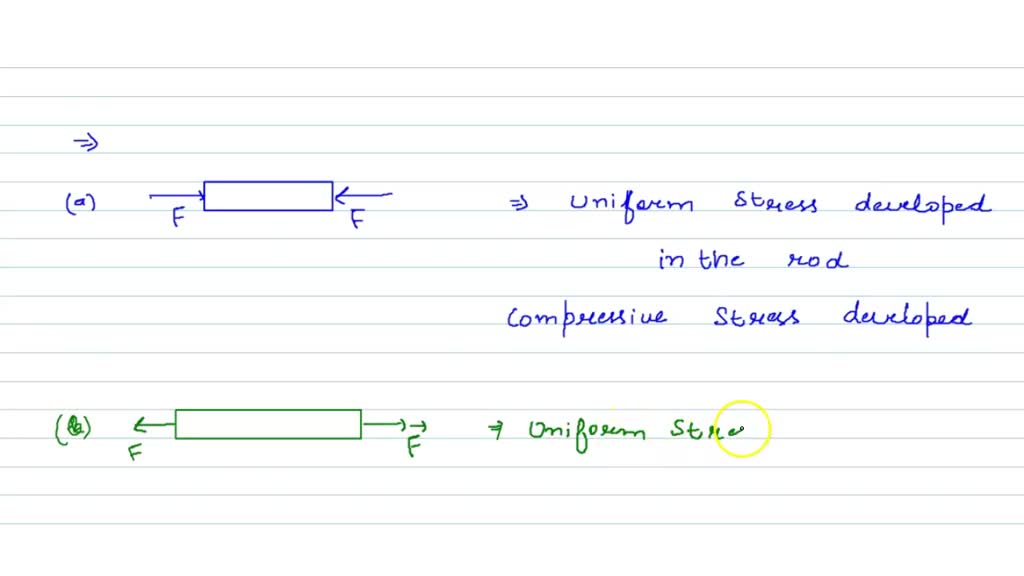 ⇒
(a) F F ⇒ Uniform Stress developed
in the rod
Compressive Stress developed
(b) F F ⇒ Uniform Stre